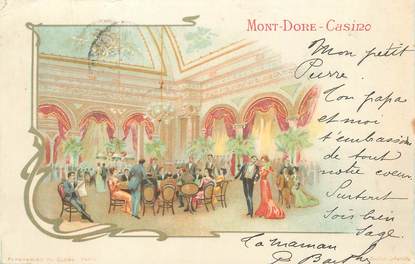 Mont-Dore - Casino
Mon petit
Pierre.
Ton papa
et moi
t'embrassons
de tout
notre coeur.
Surtout
sois bien
sage.
Ta maman